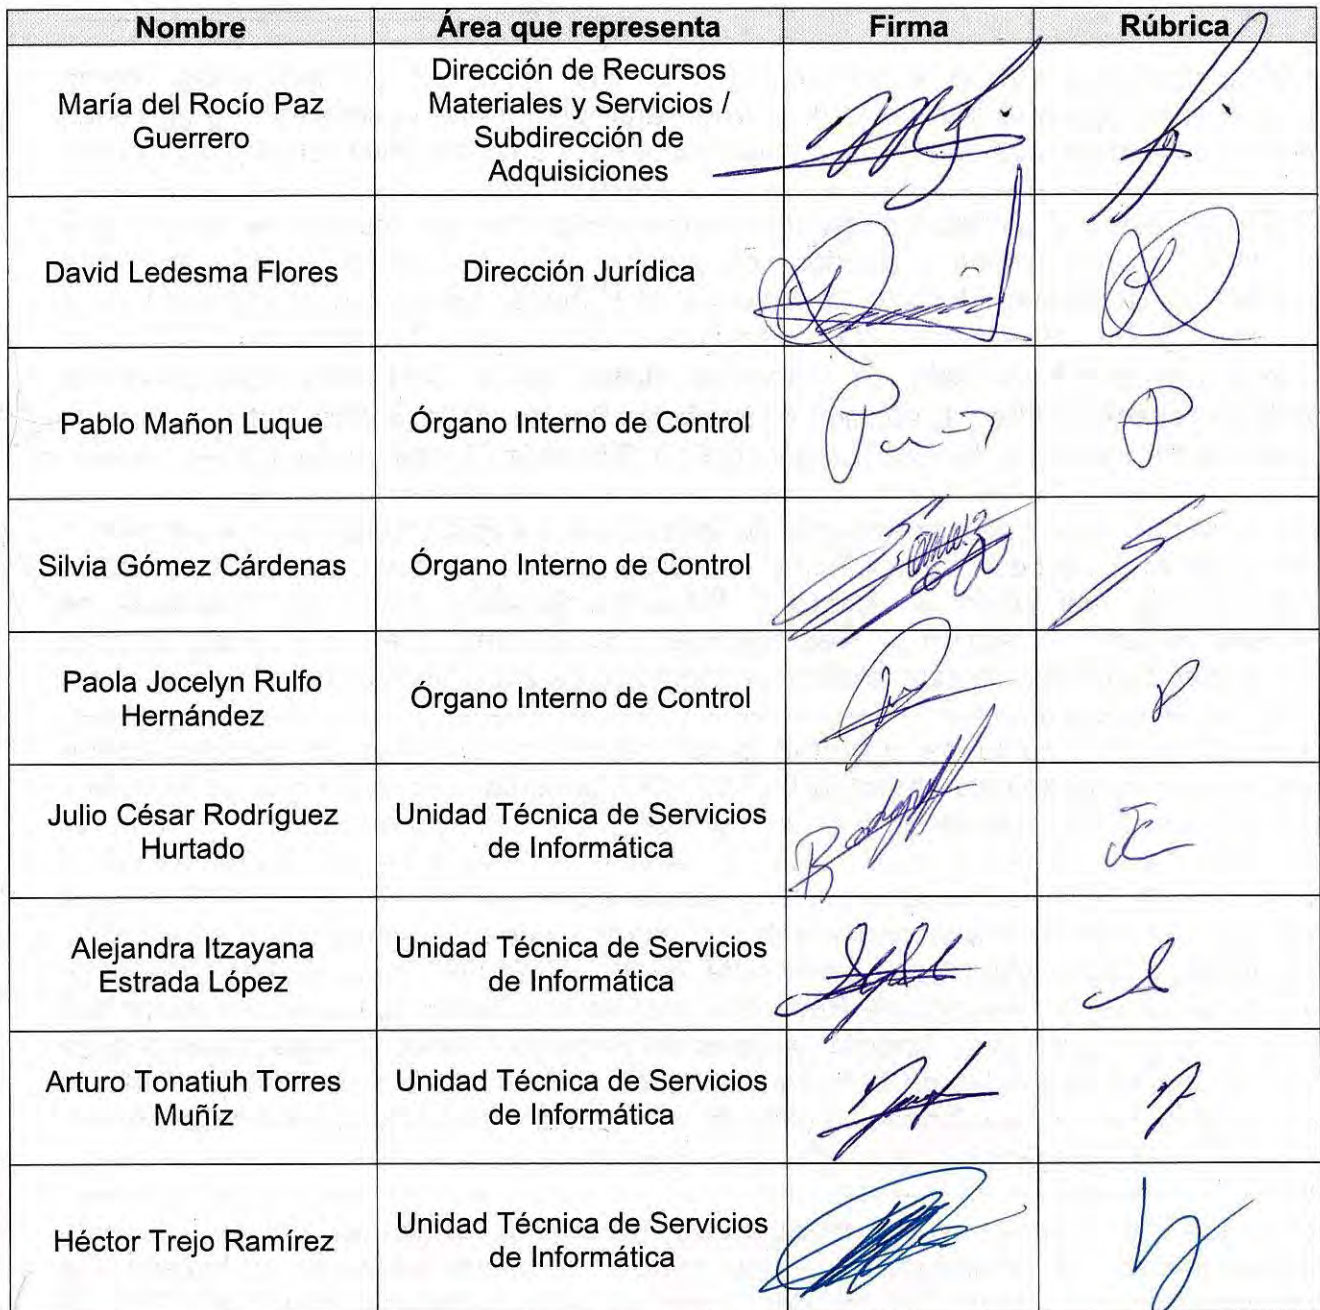 Nombre Área que representa Firma Rúbrica
María del Rocío Paz
Guerrero
Dirección de Recursos
Materiales y Servicios /
Subdirección de
Adquisiciones
David Ledesma Flores Dirección Jurídica
Pablo Mañon Luque Órgano Interno de Control
Silvia Gómez Cárdenas Órgano Interno de Control
Paola Jocelyn Rulfo
Hernández
Órgano Interno de Control
Julio César Rodríguez
Hurtado
Unidad Técnica de Servicios
de Informática
Alejandra Itzayana
Estrada López
Unidad Técnica de Servicios
de Informática
Arturo Tonatiuh Torres
Muñíz
Unidad Técnica de Servicios
de Informática
Héctor Trejo Ramírez
Unidad Técnica de Servicios
de Informática